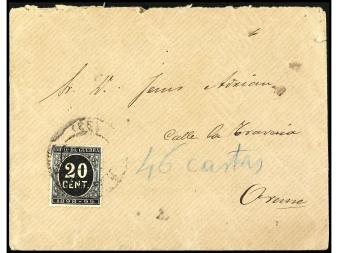 Sr. D. Jesus Adrian
Calle la Travesia
46 cartas
Orense
IMPTO DE GUERRA
20
CENT.
1898-99